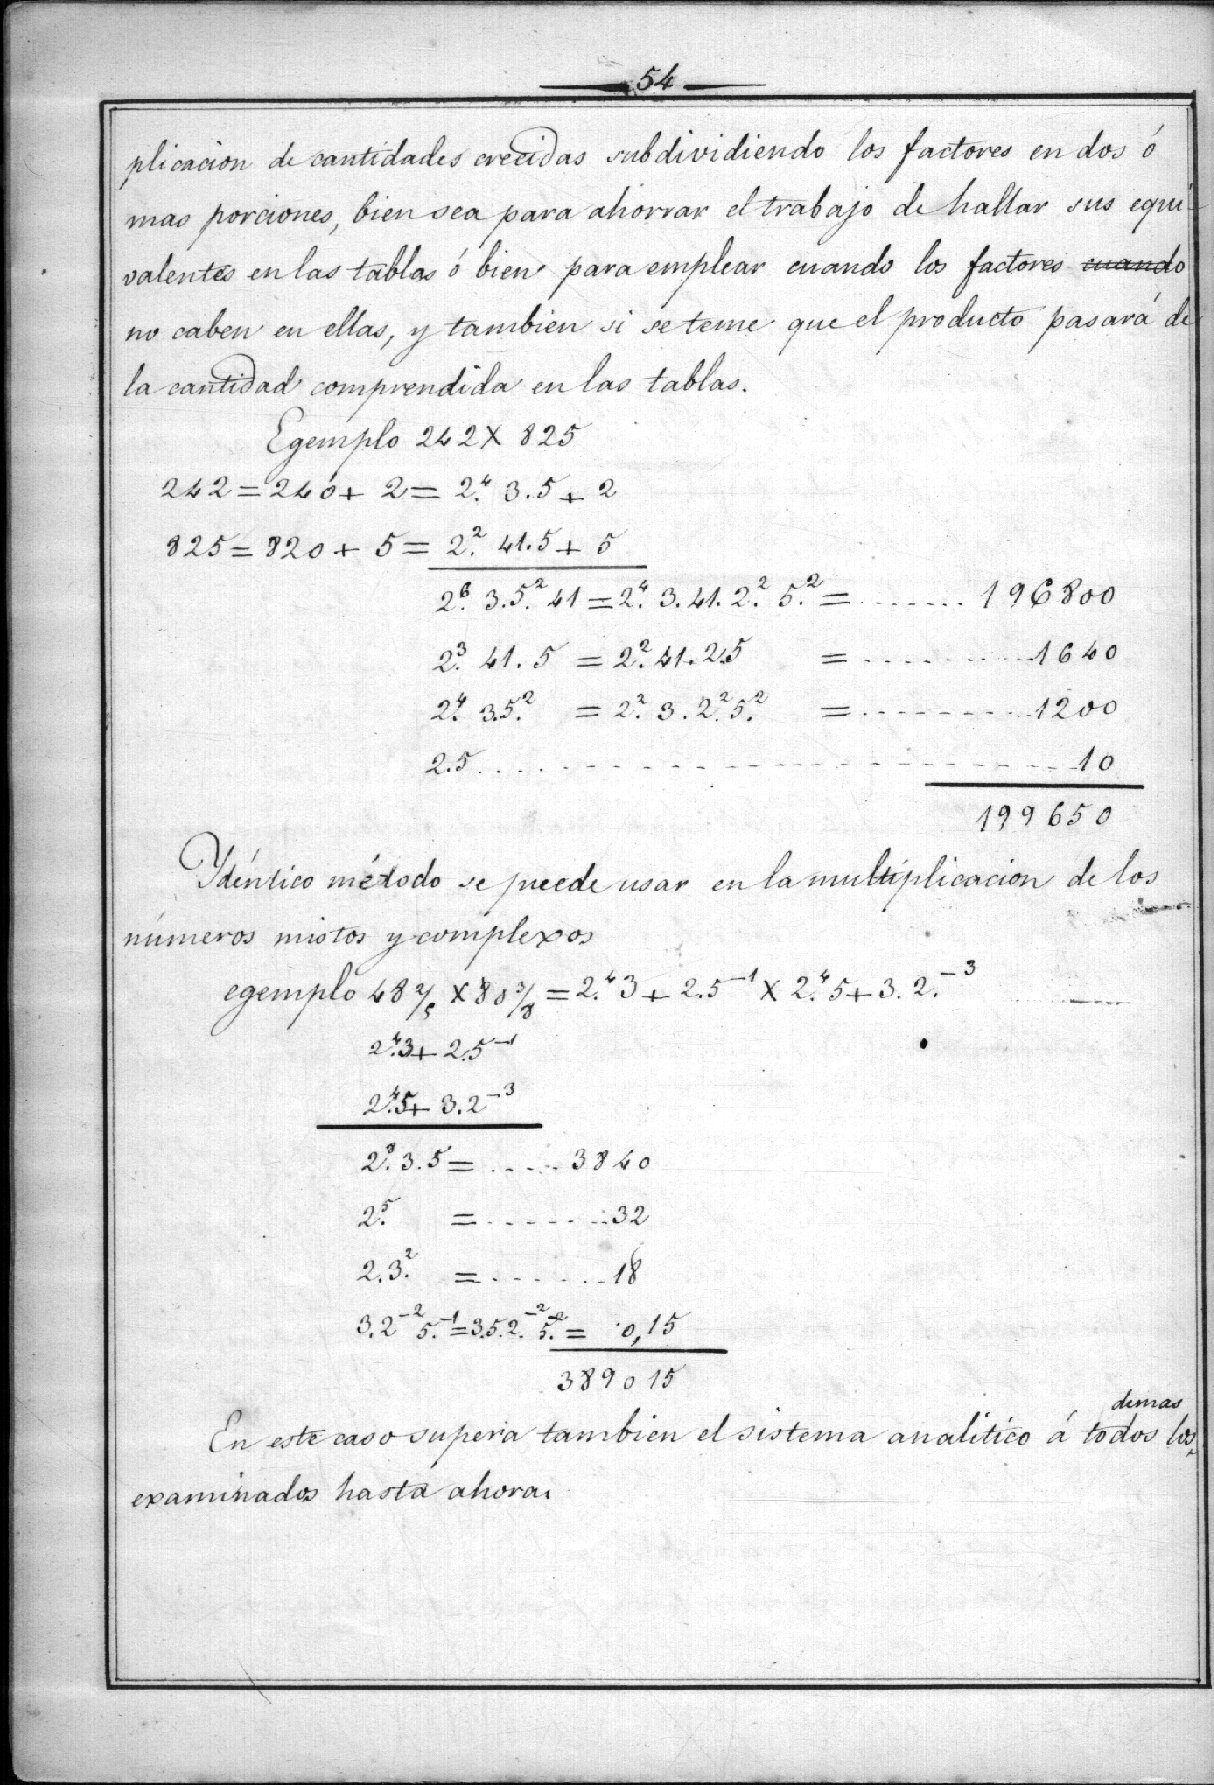 54
plicacion de cantidades crecidas subdividiendo los factores en dos ó
mas porciones, bien sea para ahorrar el trabajo de hallar sus equi-
valentes en las tablas ó bien para emplear cuando los factores cuando
no caben en ellas, y tambien si se teme que el producto pasará de
la cantidad comprendida en las tablas.
Egemplo 242 X 825
242 = 240 + 2 = 2.⁴ 3.5 + 2
825 = 820 + 5 = 2.² 41.5 + 5
2.⁶ 3.5.² 41 = 2.⁴ 3.41.2.² 5.² = ....... 196800
2.³ 41.5 = 2.² 41.2.5 = .......... 1640
2.⁴ 3.5.² = 2.² 3.2.² 5.² = .......... 1200
2.5 .......... 10
199650
Ydéntico método se puede usar en la multiplicacion de los
números mistos y complexos
egemplo 48 2/5 X 80 3/8 = 2.⁴ 3 + 2.5⁻¹ X 2.⁴ 5 + 3.2.⁻³
2.⁴3 + 2.5⁻¹
2.⁴5 + 3.2⁻³
2.⁸ 3.5 = ..... 3840
2.⁵ = ....... 32
2.3.² = ....... 18
3.2⁻² 5.⁻¹ = 3.5.2.⁻² 5.⁻² = 0,15
389015
En este caso supera tambien el sistema analítico á todos los demas
examinados hasta ahora.